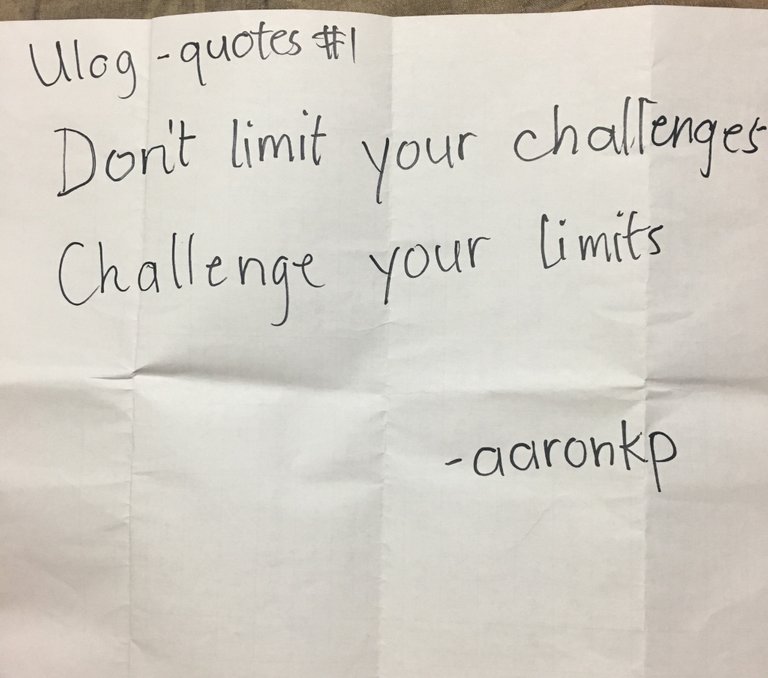 Ulog - quotes #1
Don't limit your challenges
Challenge your limits
- aaronkp